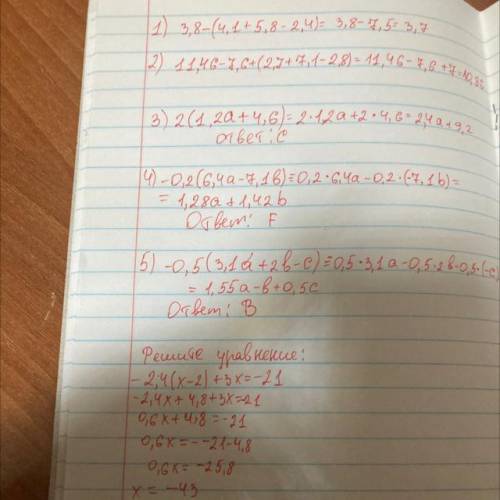 1) 3,8-(4,1+5,8-2,4)= 3,8-7,5= 3,7
2) 11,46-7,6+(2,7+7,1-2,8)= 11,46-7,6+7=10,86
3) 2(1,2a+4,6)=2·1,2a+2·4,6=2,4a+9,2
ответ: C
4) -0,2(6,4a-7,1b)=0,2·6,4a-0,2·(-7,1b)=
= 1,28a+1,42b
Ответ: F
5) -0,5(3,1a+2b-c)=0,5·3,1a-0,5·2b-0,5·(-c
= 1,55a-b+0,5c
Ответ: B
Решите уравнение:
-2,4(x-2)+3x=-21
-2,4x+4,8+3x=21
0,6x+4,8=-21
0,6x=--21-4,8
0,6x=-25,8
x= -43